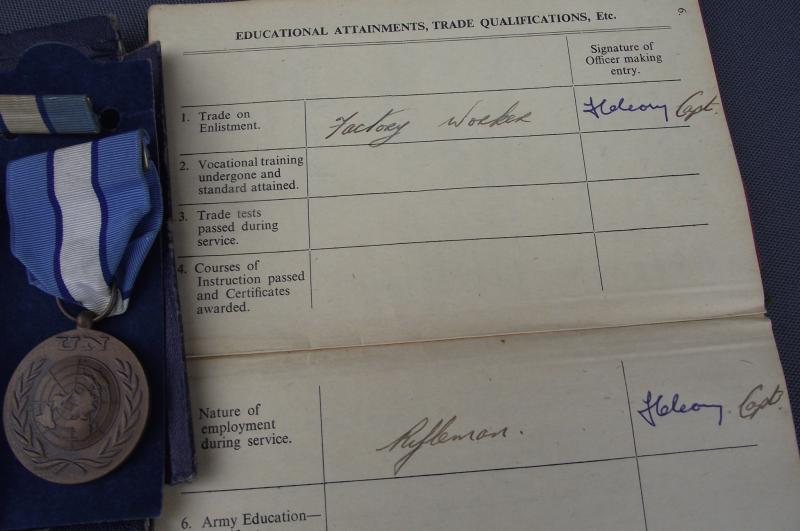 6
EDUCATIONAL ATTAINMENTS, TRADE QUALIFICATIONS, Etc.
Signature of
Officer making
entry.
1. Trade on
Enlistment.
Factory Worker
Capt.
2. Vocational training
undergone and
standard attained.
3. Trade tests
passed during
service.
4. Courses of
Instruction passed
and Certificates
awarded.
UN
Nature of
employment
during service.
Rifleman.
Capt.
6. Army Education—